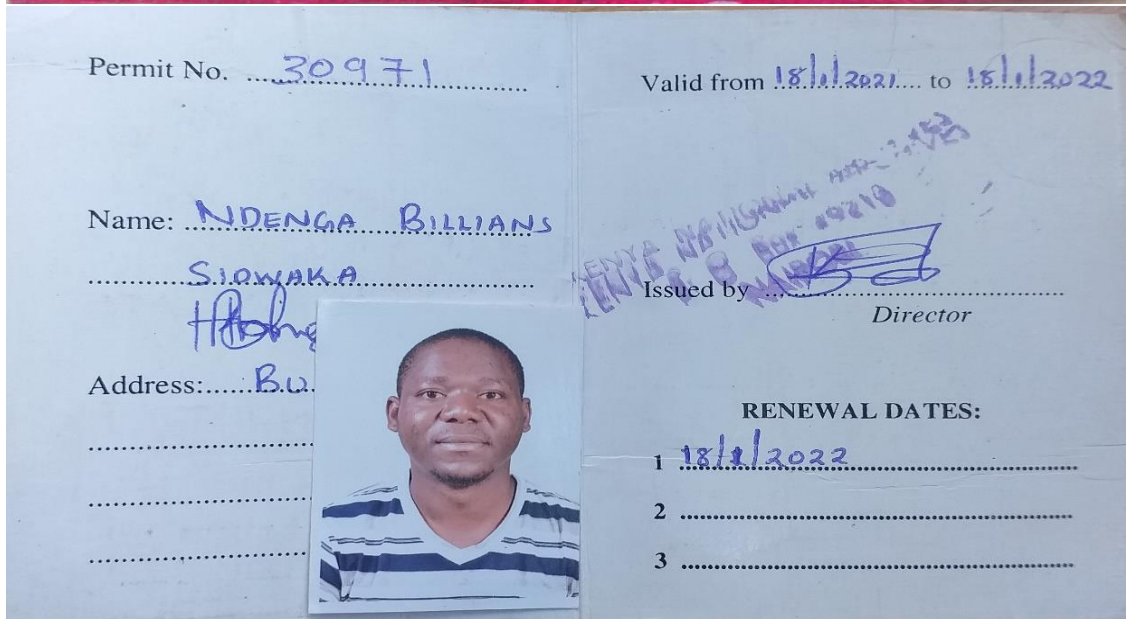 Permit No. 30971
Name: NDENGA BILLIANS
SIDWAKA
Address: BU
Valid from 18/1/2021 to 18/1/2022
KENYA
NAIROBI
Issued by
Director
RENEWAL DATES:
1 18/1/2022
2
3